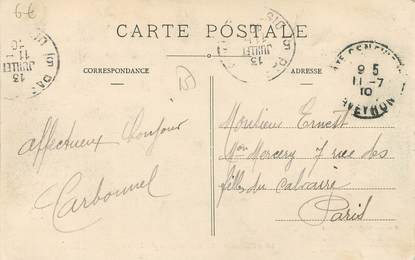 6€
CARTE POSTALE
CORRESPONDANCE
ADRESSE
13
JUILLET
11
10
13
JUILLET
9 5
11-7
10
AVEYRON
affectueux bonjour
Carbonnel
Monsieur Ernest
Mercery 7 rue des
filles du calvaire
Paris